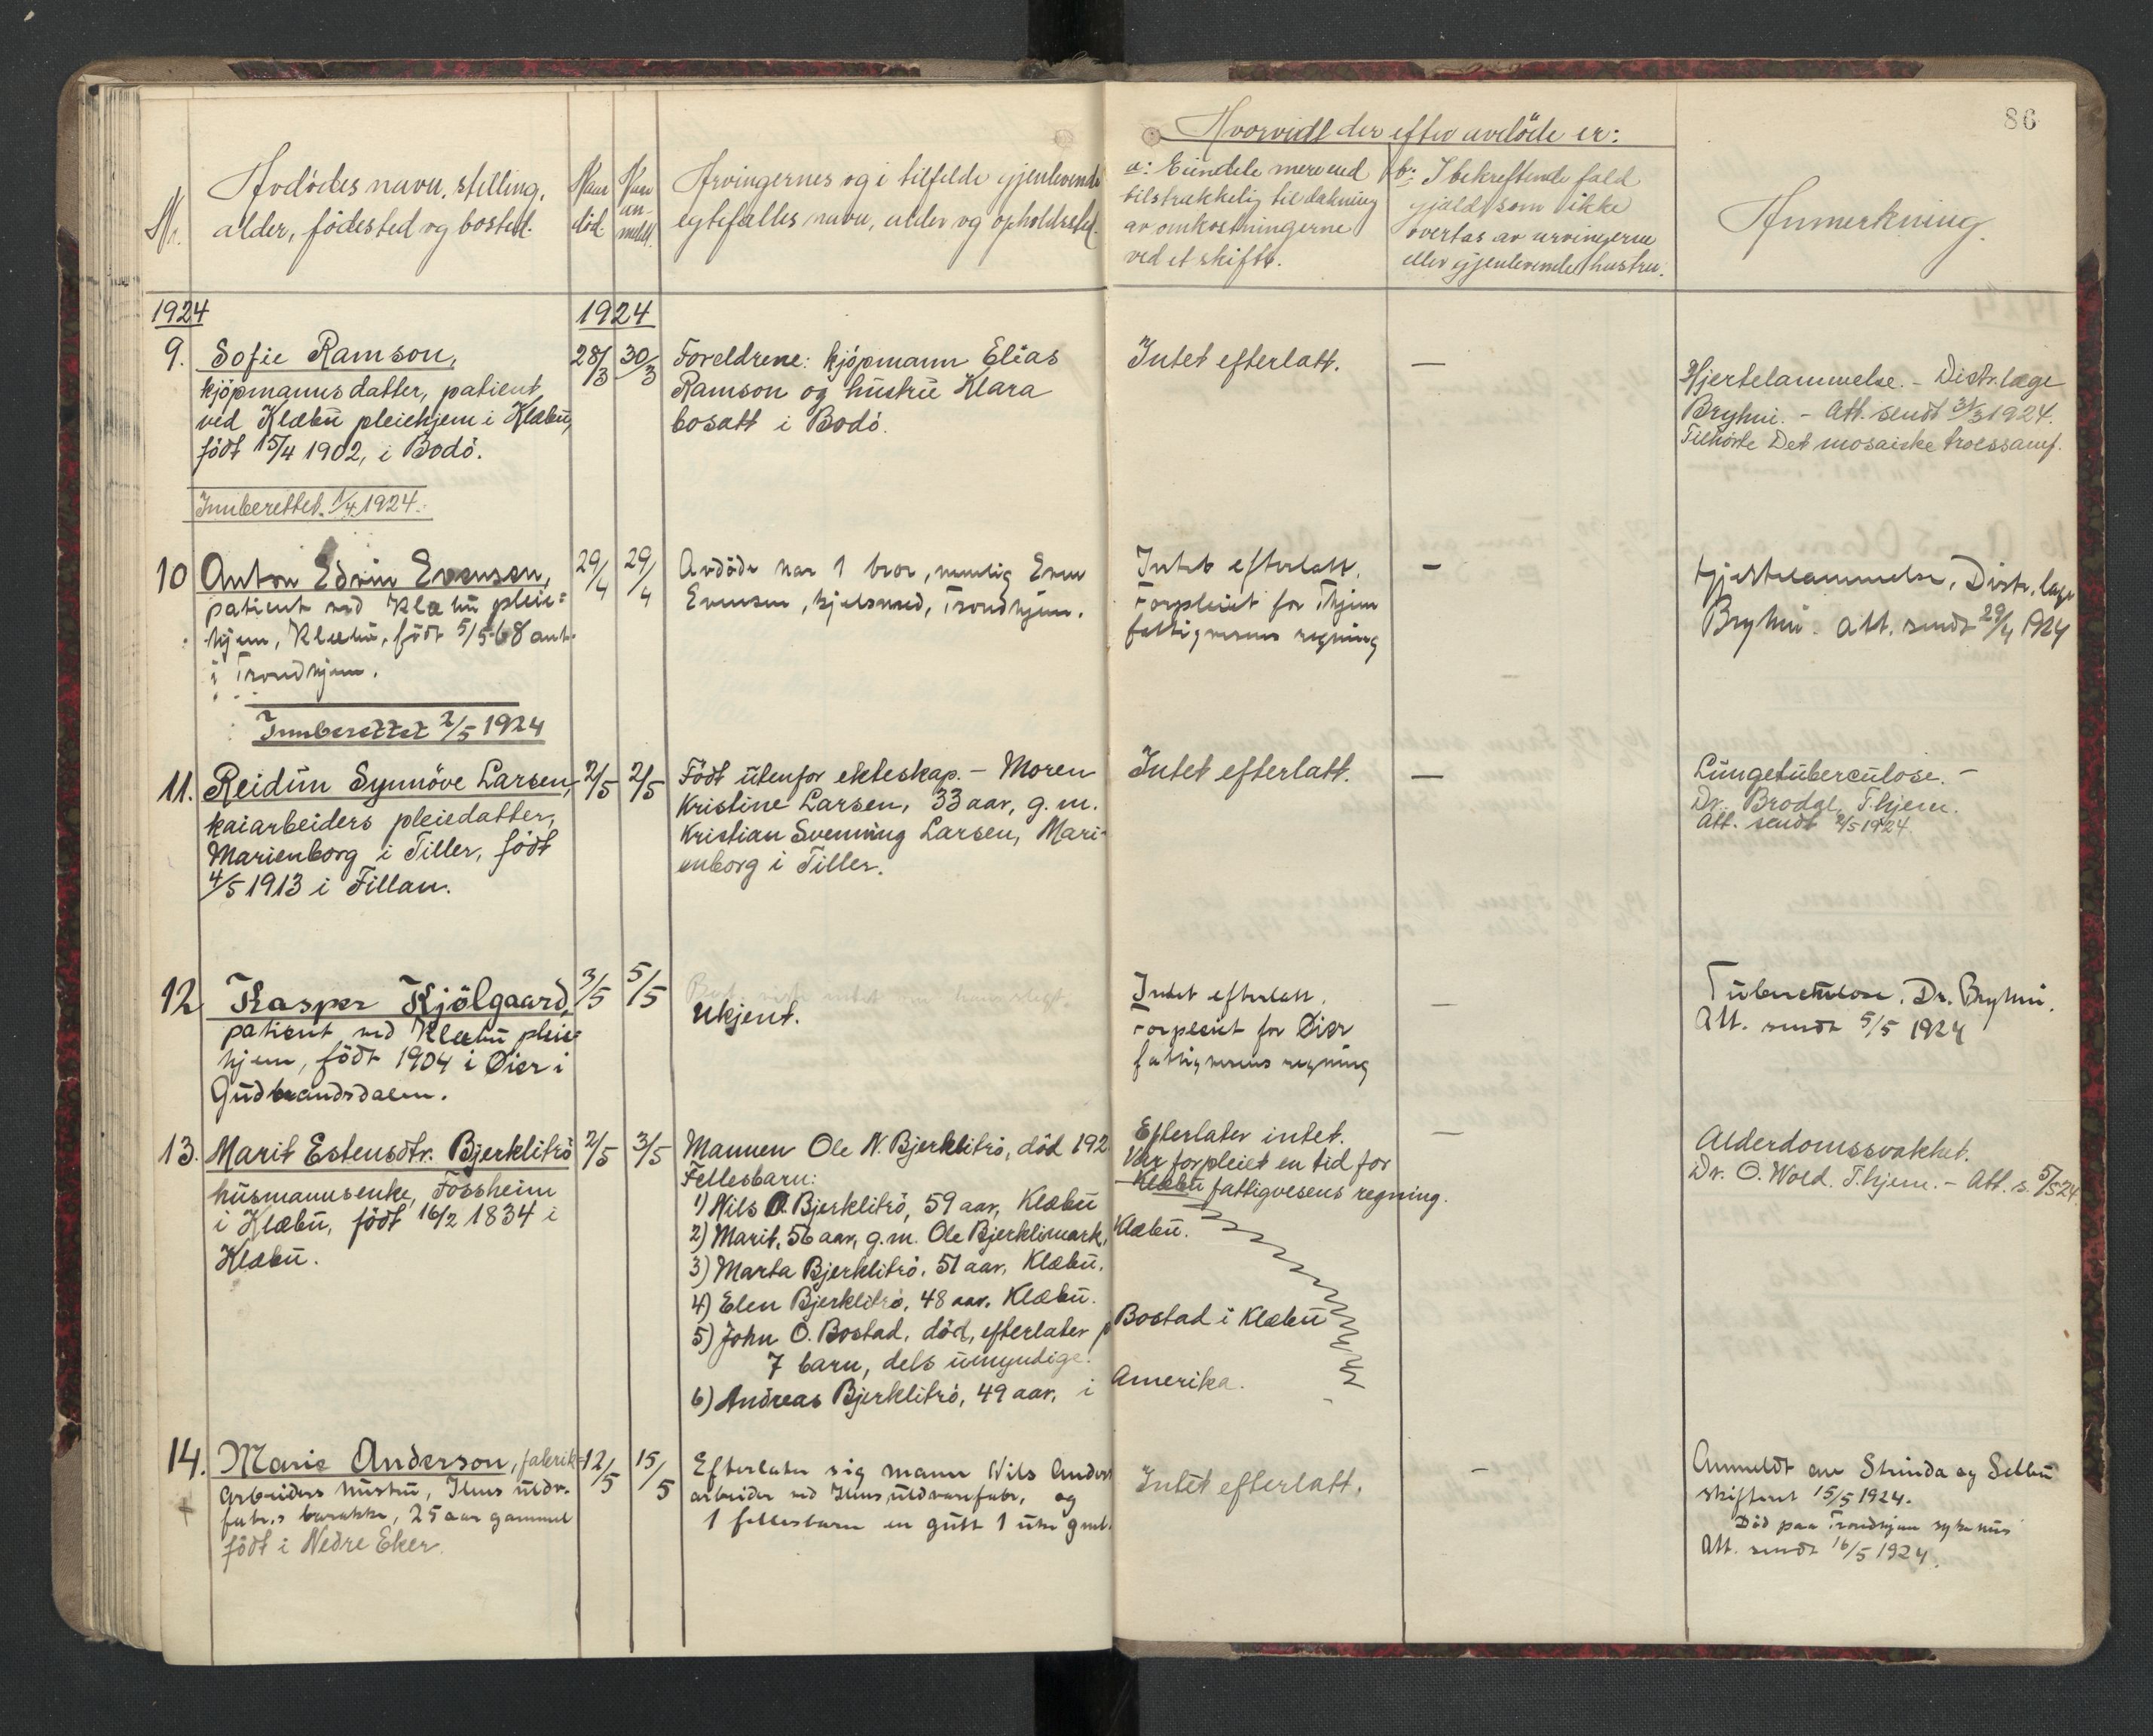 86
Nr.
Avdödes navn, stilling,
alder, födested og bosted.
Naar
död.
Naar
an-
meldt.
Arvingernes og i tilfelde gjenlevende
egtefælles navn, alder og opholdssted.
Hvorvidt der efter avdöde er:
a: Eiendele mere end
tilstrækkelig til dækning
av omkostningerne
ved et skifte.
b: I bekreftende fald
gjæld som ikke
overtas av arvingerne
eller gjenlevende hustru.
Anmerkning.
1924
1924
9. Sofie Ramson,
kjöpmannsdatter, patient
ved Klæbu pleiehjem i Klæbu,
födt 15/4 1902, i Bodö.
Innberettet 1/4 1924.
28/3
30/3
Foreldrene: kjöpmann Elias
Ramson og hustru Klara
bosatt i Bodö.
Intet efterlatt.
—
Hjertelammelse. - Distr.læge
Bryhni. - Att. sendt 31/3 1924.
Tilhörte Det mosaiske troessamf.
10 Anton Edvin Evensen,
patient ved Klæbu pleie=
hjem, Klæbu, födt 5/5 68 ant.
i Trondhjem.
Innberettet 2/5 1924
29/4
29/4
Avdöde har 1 bror, nemlig Even
Evensen, hjelsmed, Trondhjem.
Intet efterlatt.
Forpleiet for Thjem
fattigvesens regning
—
Hjertelammelse, Distr. læge
Bryhni. Att. sendt 29/4 1924
11. Reidun Synnöve Larsen,
kaiarbeiders pleiedatter,
Marienborg i Tiller, födt
4/5 1913 i Fillan.
2/5
2/5
Födt utenfor ekteskap. - Moren
Kristine Larsen, 33 aar, g.m.
Kristian Svenning Larsen, Mari-
enborg i Tiller.
Intet efterlatt.
—
Lungetuberculose. -
Dr. Brodal, T.hjem.
Att. sendt 2/5 1924.
12 Kasper Kjölgaard,
patient ved Klæbu pleie-
hjem, födt 1904 i Öier i
Gudbrandsdalen.
3/5
5/5
Ukjent.
Intet efterlatt.
Forpleiet for Öier
fattigvesens regning
—
Tuberculose. Dr. Bryhni.
Att. sendt 5/5 1924
13. Marit Estensdtr. Bjerklitrö
husmannsenke, Fossheim
i Klæbu, födt 16/2 1834 i
Klæbu.
2/5
3/5
Mannen Ole N. Bjerklitrö, död 192
Fellesbarn:
1) Nils O. Bjerklitrö, 59 aar, Klæbu
2) Marit, 56 aar, g.m. Ole Bjerklimark, Klæbu.
3) Marta Bjerklitrö, 51 aar, Klæbu.
4) Elen Bjerklitrö, 48 aar, Klæbu.
5) John O. Bostad, död, efterlater p Bostad i Klæbu
7 barn, dels umyndige.
6) Andreas Bjerklitrö, 49 aar, i Amerika.
Efterlater intet.
Var forpleiet en tid for
Klæbu fattigvesens regning.
—
Alderdomssvakhet.
Dr. O. Wold. T.hjem. - Att. s. 5/5 24.
14. Marie Anderson, fabrik=
arbeiders hustru, Ilens uldv.
fabr.s barakke, 25 aar gammel
födt i Nedre Eker.
12/5
15/5
Efterlater sig mann Nils Anders
arbeider ved Ilens uldvarefabr. og
1 fellesbarn en gutt 1 uke gml.
Intet efterlatt.
—
Anmeldt av Strinda og Selbu
skifterett 15/5 1924.
Död paa Trondhjem sykehus
Att. sendt 16/5 1924.